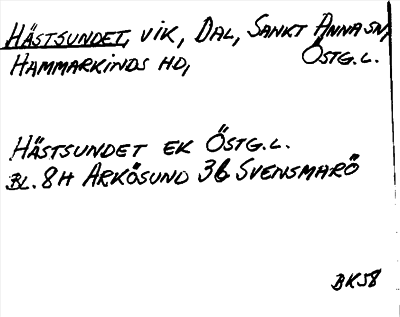 HÄSTSUNDET, VIK, DAL, SANKT ANNA SN,
HAMMARKINDS HD, ÖSTG.L.
HÄSTSUNDET EK ÖSTG.L.
BL. 8H ARKÖSUND 3G SVENSMARÖ
BK58